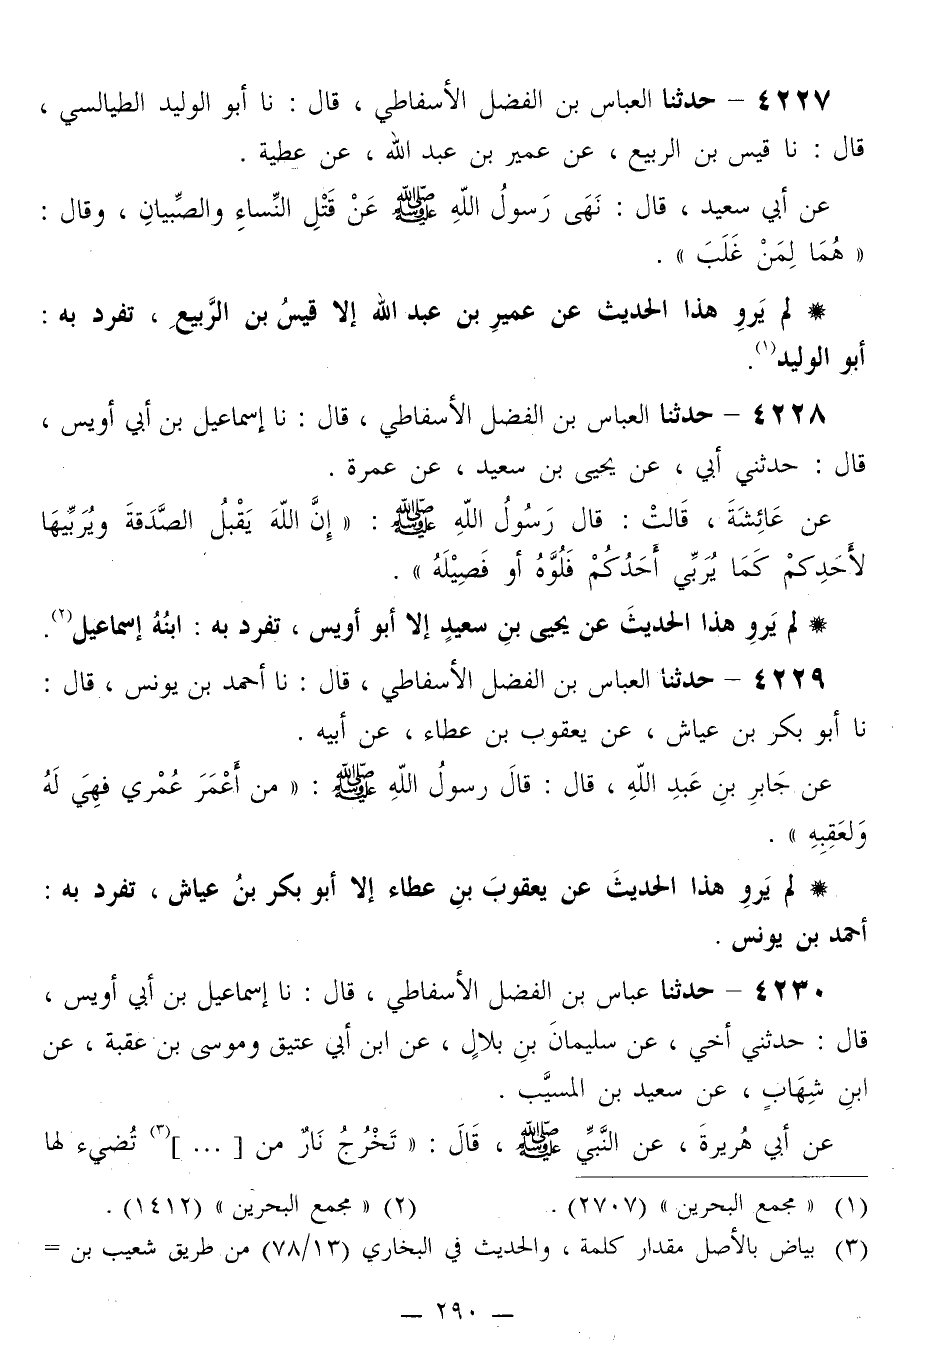 ٤٢٢٧ – حدثنا العباس بن الفضل الأسفاطي ، قال : نا أبو الوليد الطيالسي ،
قال : نا قيس بن الربيع ، عن عمير بن عبد الله ، عن عطية .
عن أبي سعيد ، قال : نَهَى رَسولُ اللّهِ ﷺ عَنْ قَتْلِ النِّساءِ والصِّبيانِ ، وقال :
« هُمَا لِمَنْ غَلَبَ » .
* لم يَروِ هذا الحديث عن عميرِ بن عبد الله إلا قيسُ بن الرَّبيعِ ، تفرد به :
أبو الوليد(١).
٤٢٢٨ – حدثنا العباس بن الفضل الأسفاطي ، قال : نا إسماعيل بن أبي أويس ،
قال : حدثني أبي ، عن يحيى بن سعيد ، عن عمرة .
عن عَائِشَةَ ، قَالتْ : قال رَسُولُ اللّهِ ﷺ : « إِنَّ اللّهَ يَقْبلُ الصَّدَقةَ ويُرَبِّيهَا
لأَحَدِكمْ كَمَا يُرَبِّي أَحَدُكُمْ فَلُوَّهُ أو فَصِيْلَهُ » .
* لم يَروِ هذا الحديثَ عن يحيى بنِ سعيدٍ إلا أبو أويس ، تفرد به : ابنُهُ إسماعيل(٢).
٤٢٢٩ – حدثنا العباس بن الفضل الأسفاطي ، قال : نا أحمد بن يونس ، قال :
نا أبو بكر بن عياش ، عن يعقوب بن عطاء ، عن أبيه .
عن جَابرِ بنِ عَبدِ اللّهِ ، قال : قالَ رسولُ اللّهِ ﷺ : « من أَعْمَرَ عُمْري فهِيَ لَهُ
وَلعَقِبِهِ » .
* لم يَروِ هذا الحديثَ عن يعقوبَ بنِ عطاء إلا أبو بكر بنُ عياش ، تفرد به :
أحمد بن يونس .
٤٢٣٠ – حدثنا عباس بن الفضل الأسفاطي ، قال : نا إسماعيل بن أبي أويس ،
قال : حدثني أخي ، عن سليمانَ بنِ بلالٍ ، عن ابن أبي عتيق وموسى بن عقبة ، عن
ابنِ شِهَابٍ ، عن سعيد بن المسيَّب .
عن أبي هُريرةَ ، عن النَّبيِّ ﷺ ، قَالَ : « تَخْرُجُ نَارٌ من [ ... ](٣) تُضيء لها
(١) « مجمع البحرين » (٢٧٠٧) . (٢) « مجمع البحرين » (١٤١٢) .
(٣) بياض بالأصل مقدار كلمة ، والحديث في البخاري (٧٨/١٣) من طريق شعيب بن =
— ٢٩٠ —